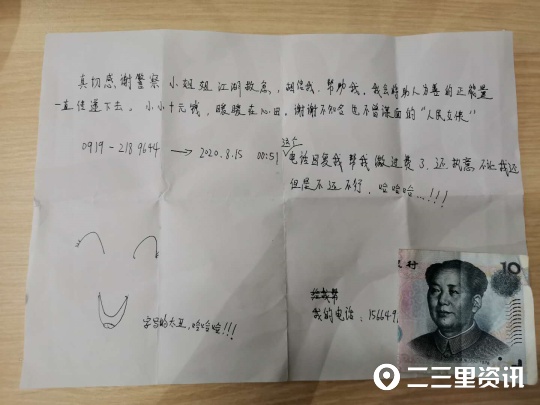 真切感谢警察小姐姐江湖救急，相信我，帮助我，我会将助人为善的正能量
一直传递下去。小小十元钱，暖暖在心田。谢谢不知名也不曾谋面的“人民立保”
0919-2189644 → 2020.8.15 00:51 这个电话回复我帮我缴过费了，还执意不让我还
但是不还不行，哈哈哈...!!!
字写的太丑，哈哈哈!!!
我的电话：156649
10
二三里资讯